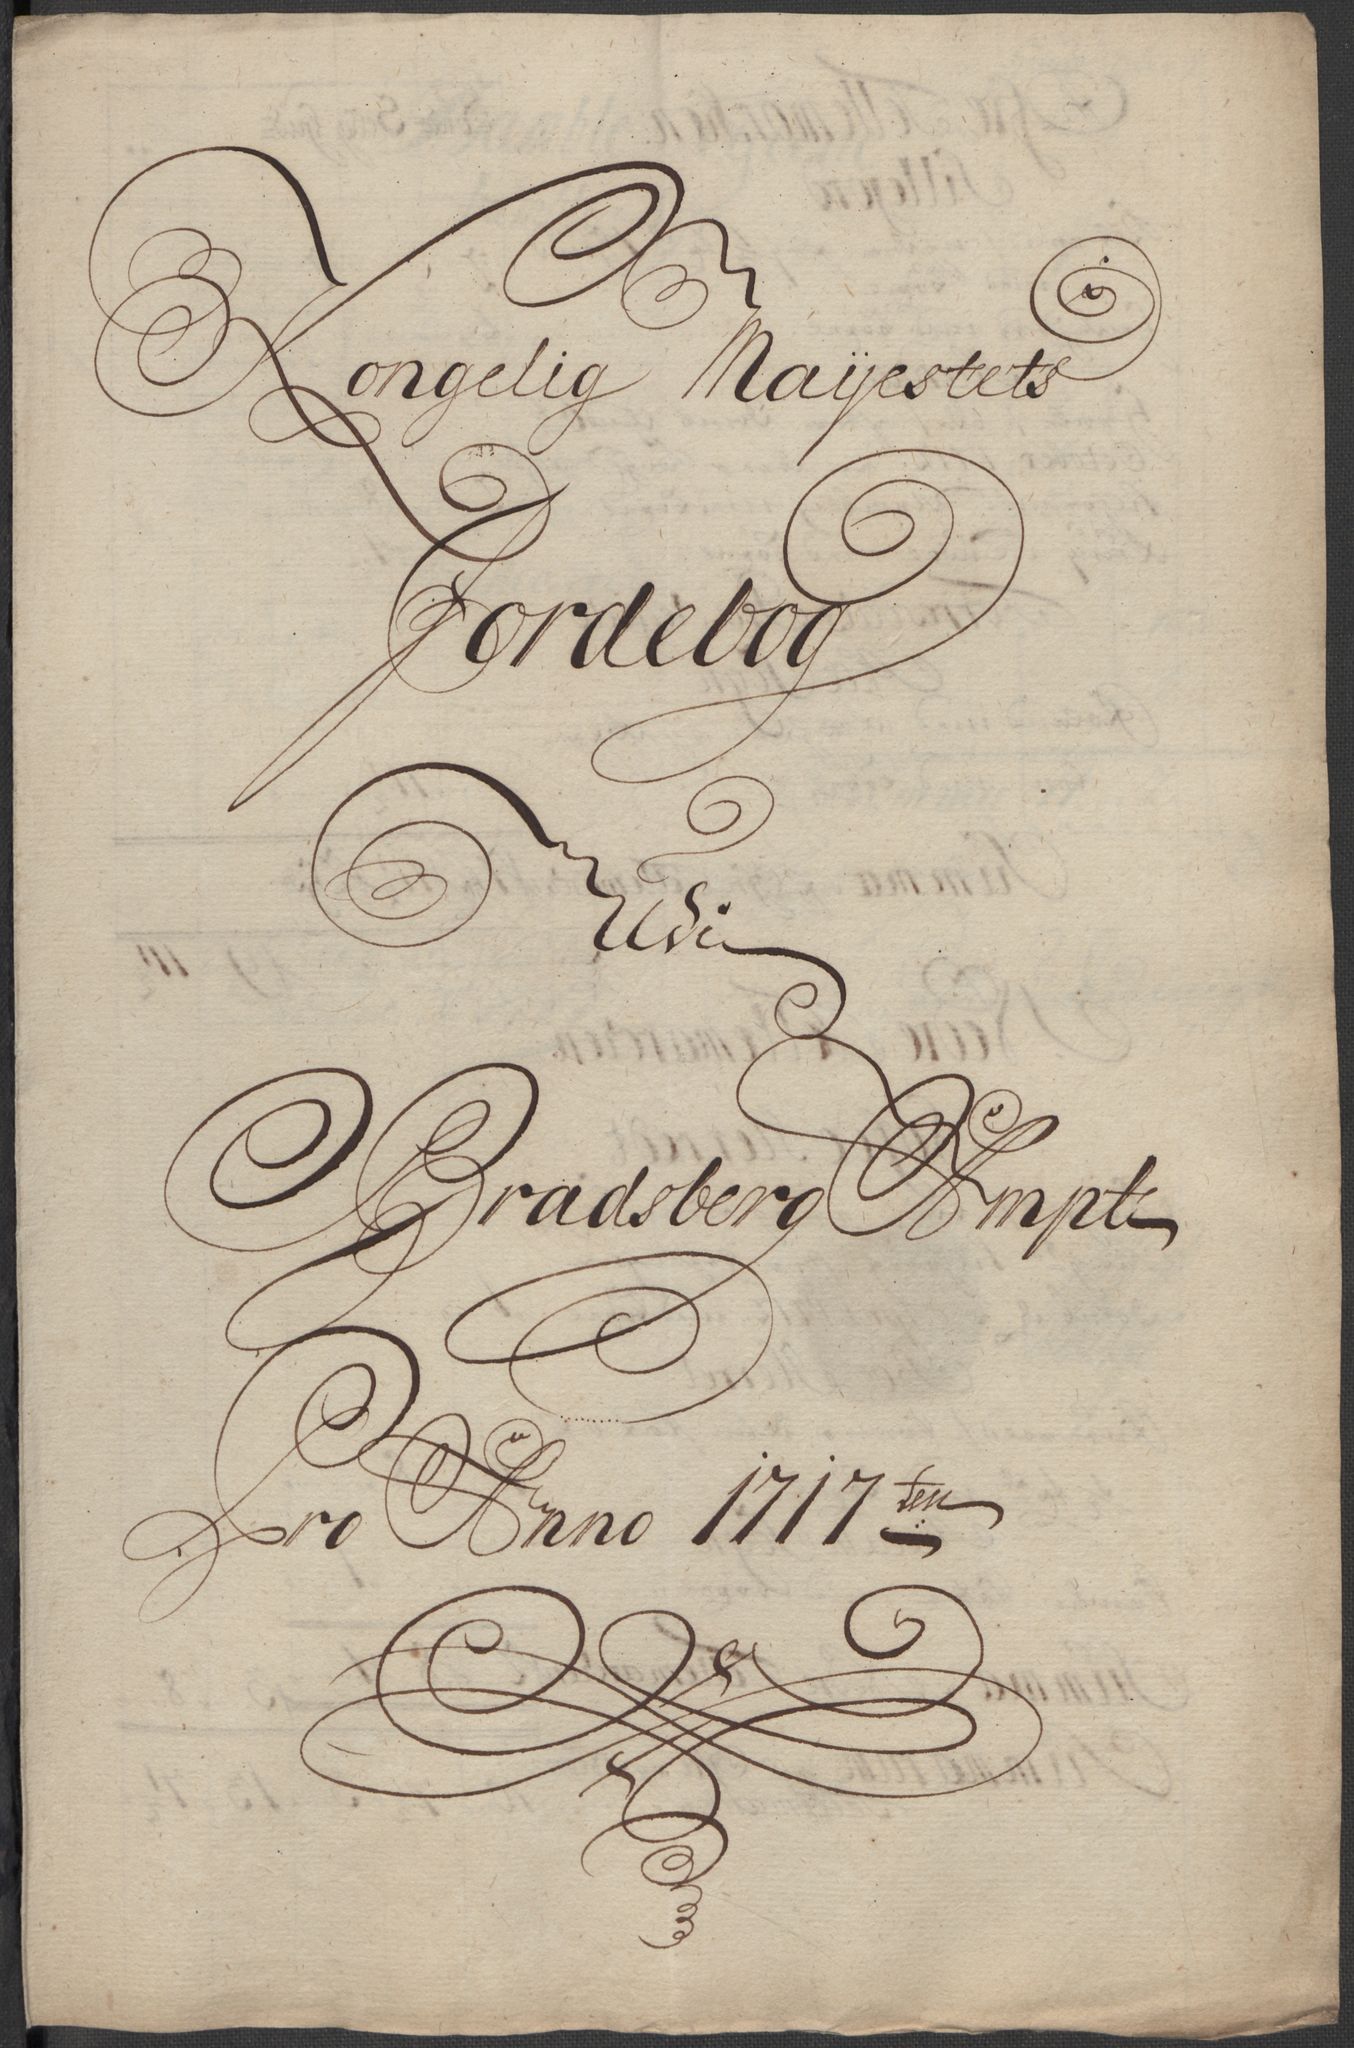 Kongelig Maÿestets
Jordebog
Udi
Bradsberg Ampt
Pro Anno 1717 ten